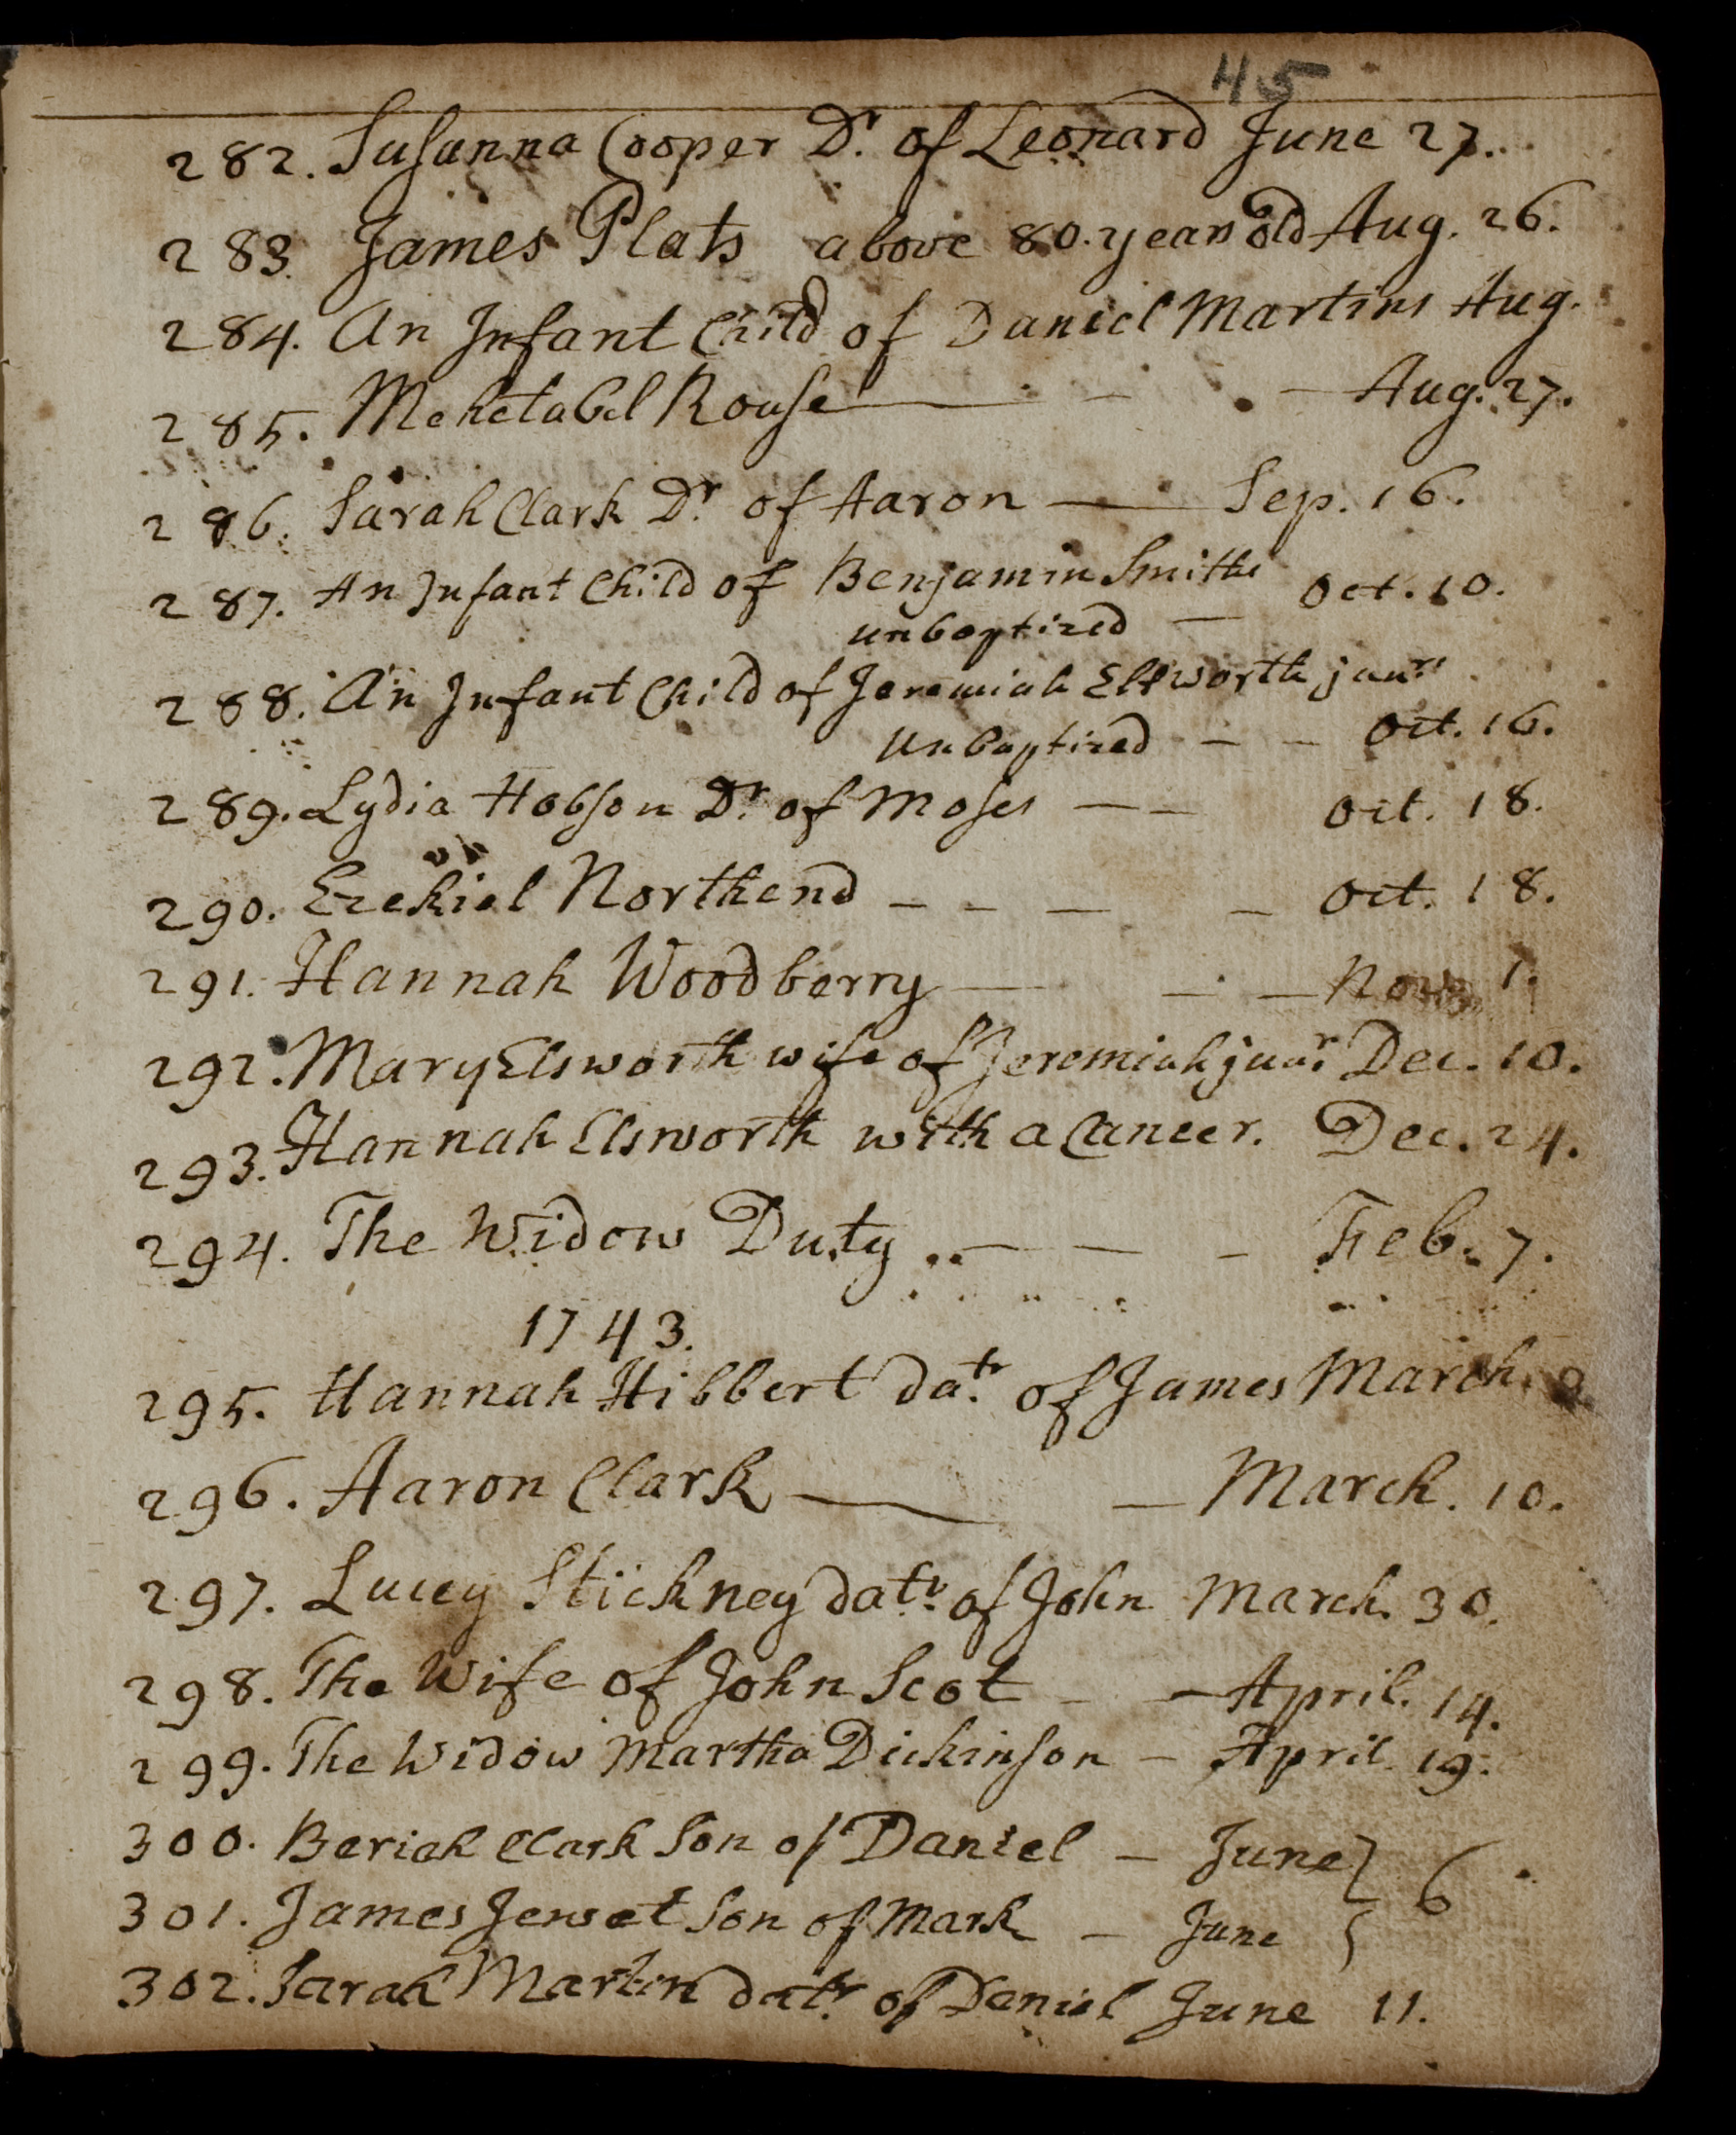 45
282. Susanna Cooper Dr. of Leonard June 27.
283. James Plats above 80. years old Aug. 26.
284. An Infant Child of Daniel Martins Aug.
285. Mehetabel Rouse — Aug. 27.
286. Sarah Clark Dr. of Aaron — Sep. 16.
287. An Infant Child of Benjamin Smiths Oct. 10.
unbaptized —
288. An Infant Child of Jeremiah Elsworth junrs
Unbaptized — — Oct. 16.
289. Lydia Hobson Dr. of Moses — — Oct. 18.
290. Ezekiel Northend — — — — Oct. 18.
291. Hannah Woodberry — — — Nov. 1.
292. Mary Elsworth wife of Jeremiah junr. Dec. 10.
293. Hannah Elsworth with a Cancer. Dec. 24.
294. The Widow Duty — — — Feb. 7.
1743.
295. Hannah Hibbert datr. of James March.
296. Aaron Clark — — March. 10.
297. Lucey Stickney datr. of John March. 30.
298. The Wife of John Scot — — April. 14.
299. The Widow Martha Dickinson — April. 19.
300. Beriah Clark Son of Daniel — June } 6
301. James Jewet Son of Mark — June
302. Sarah Martin datr. of Daniel June 11.